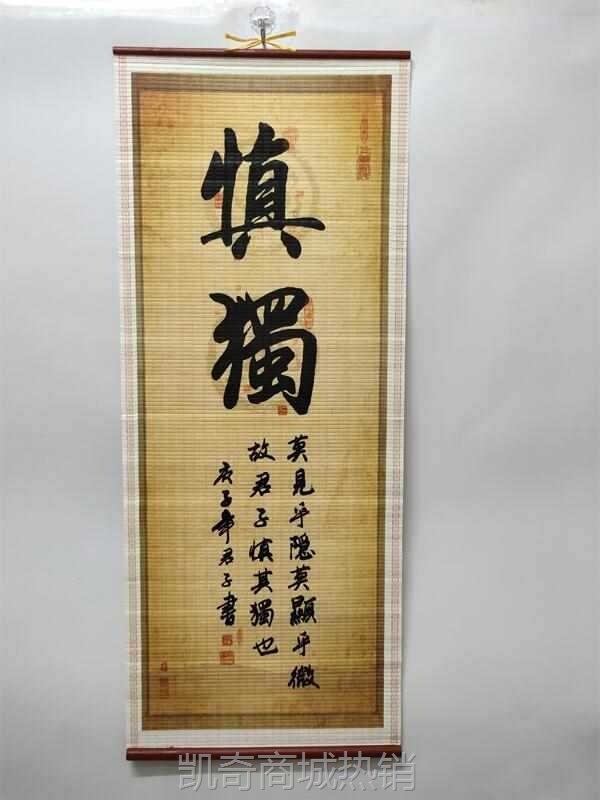 慎獨
莫見乎隱莫顯乎微
故君子慎其獨也
庚子年君子書
凯奇商城热销